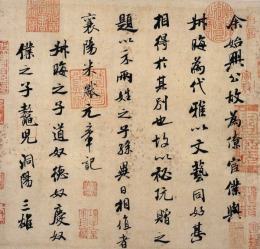 余始興公故為僚宦僕與
叔晦為代雅以文藝同好甚
相得於其別也故以秘玩贈之
題以示兩姓之子孫異日相值者
襄陽米黻元章記
叔晦之子道奴德奴慶奴
僕之子鰲兒洞陽三雄